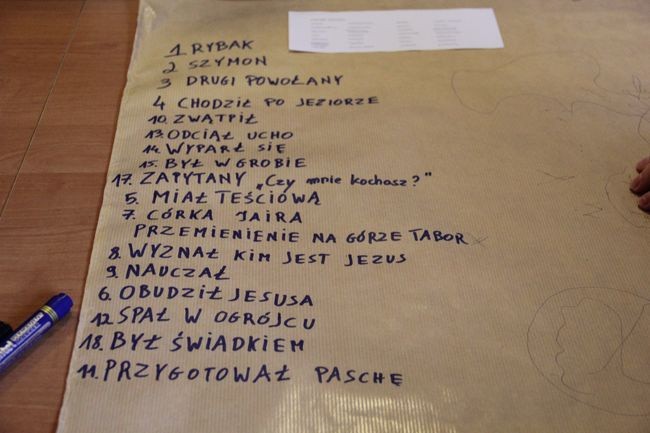 1 RYBAK
2 SZYMON
3 DRUGI POWOŁANY
4 CHODZIŁ PO JEZIORZE
10. ZWĄTPIŁ
13. ODCIĄŁ UCHO
14. WYPARŁ SIĘ
15. BYŁ W GROBIE
17. ZAPYTANY „Czy mnie kochasz?"
5. MIAŁ TEŚCIÓWĄ
7. CÓRKA JAIRA
PRZEMIENIENIE NA GÓRZE TABOR
8. WYZNAŁ KIM JEST JEZUS
9. NAUCZAŁ
6. OBUDZIŁ JESUSA
12 SPAŁ W OGRÓJCU
18. BYŁ ŚWIADKIEM
11. PRZYGOTOWAŁ PASCHĘ